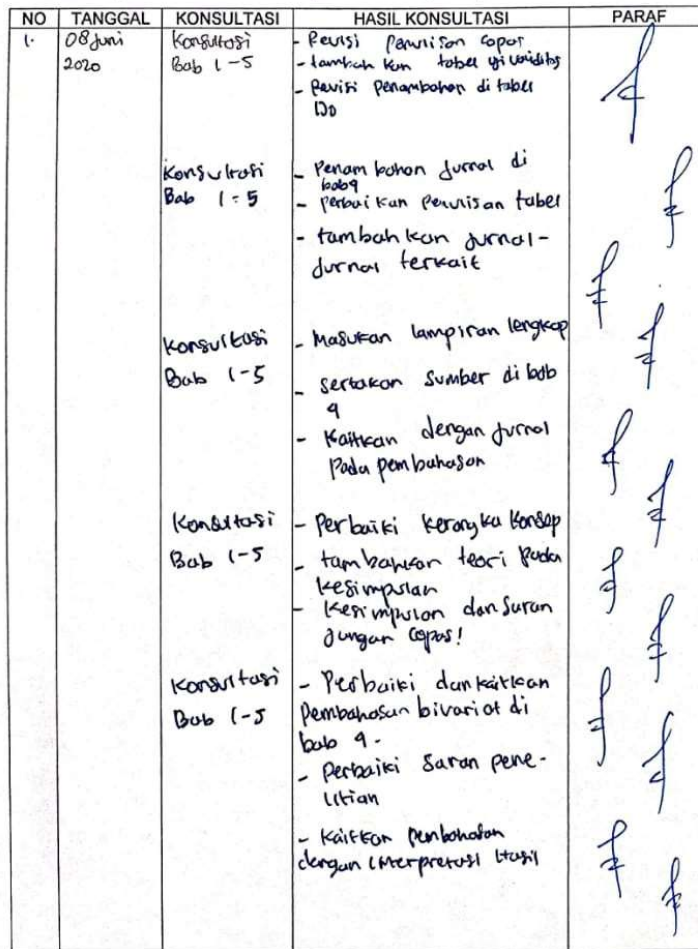 NO TANGGAL KONSULTASI HASIL KONSULTASI PARAF
1. 08 Juni Konsultasi - Revisi Penulisan copas
2020 Bab 1-5 - tambah kan tabel uji validitas
- Revisi Penambahan di tabel
DO
Konsultasi - Penambahan Jurnal di
bab 4
Bab 1-5 - perbaikan penulisan tabel
- tambah kan jurnal-
Jurnal terkait
Konsultasi - Masukan lampiran lengkap
Bab 1-5 - sertakan sumber di bab
4
- Kaitkan dengan jurnal
Pada pembahasan
Konsultasi - Perbaiki kerangka konsep
Bab 1-5 - tambahkan teori pada
kesimpulan
- kesimpulan dan saran
jangan copas!
Konsultasi - Perbaiki dan kaitkan
Bab 1-5 Pembahasan bivariat di
bab 4.
- Perbaiki saran pene-
litian
- Kaitkan pembahasan
dengan interpretasi Hasil